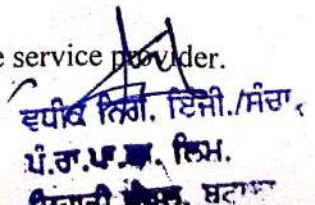 e service provider.
ਵਧੀਕ ਨਿਗ. ਇੰਜੀ./ਸੰਚਾ.
ਪੰ.ਰਾ.ਪਾ. ਲਿਮ.